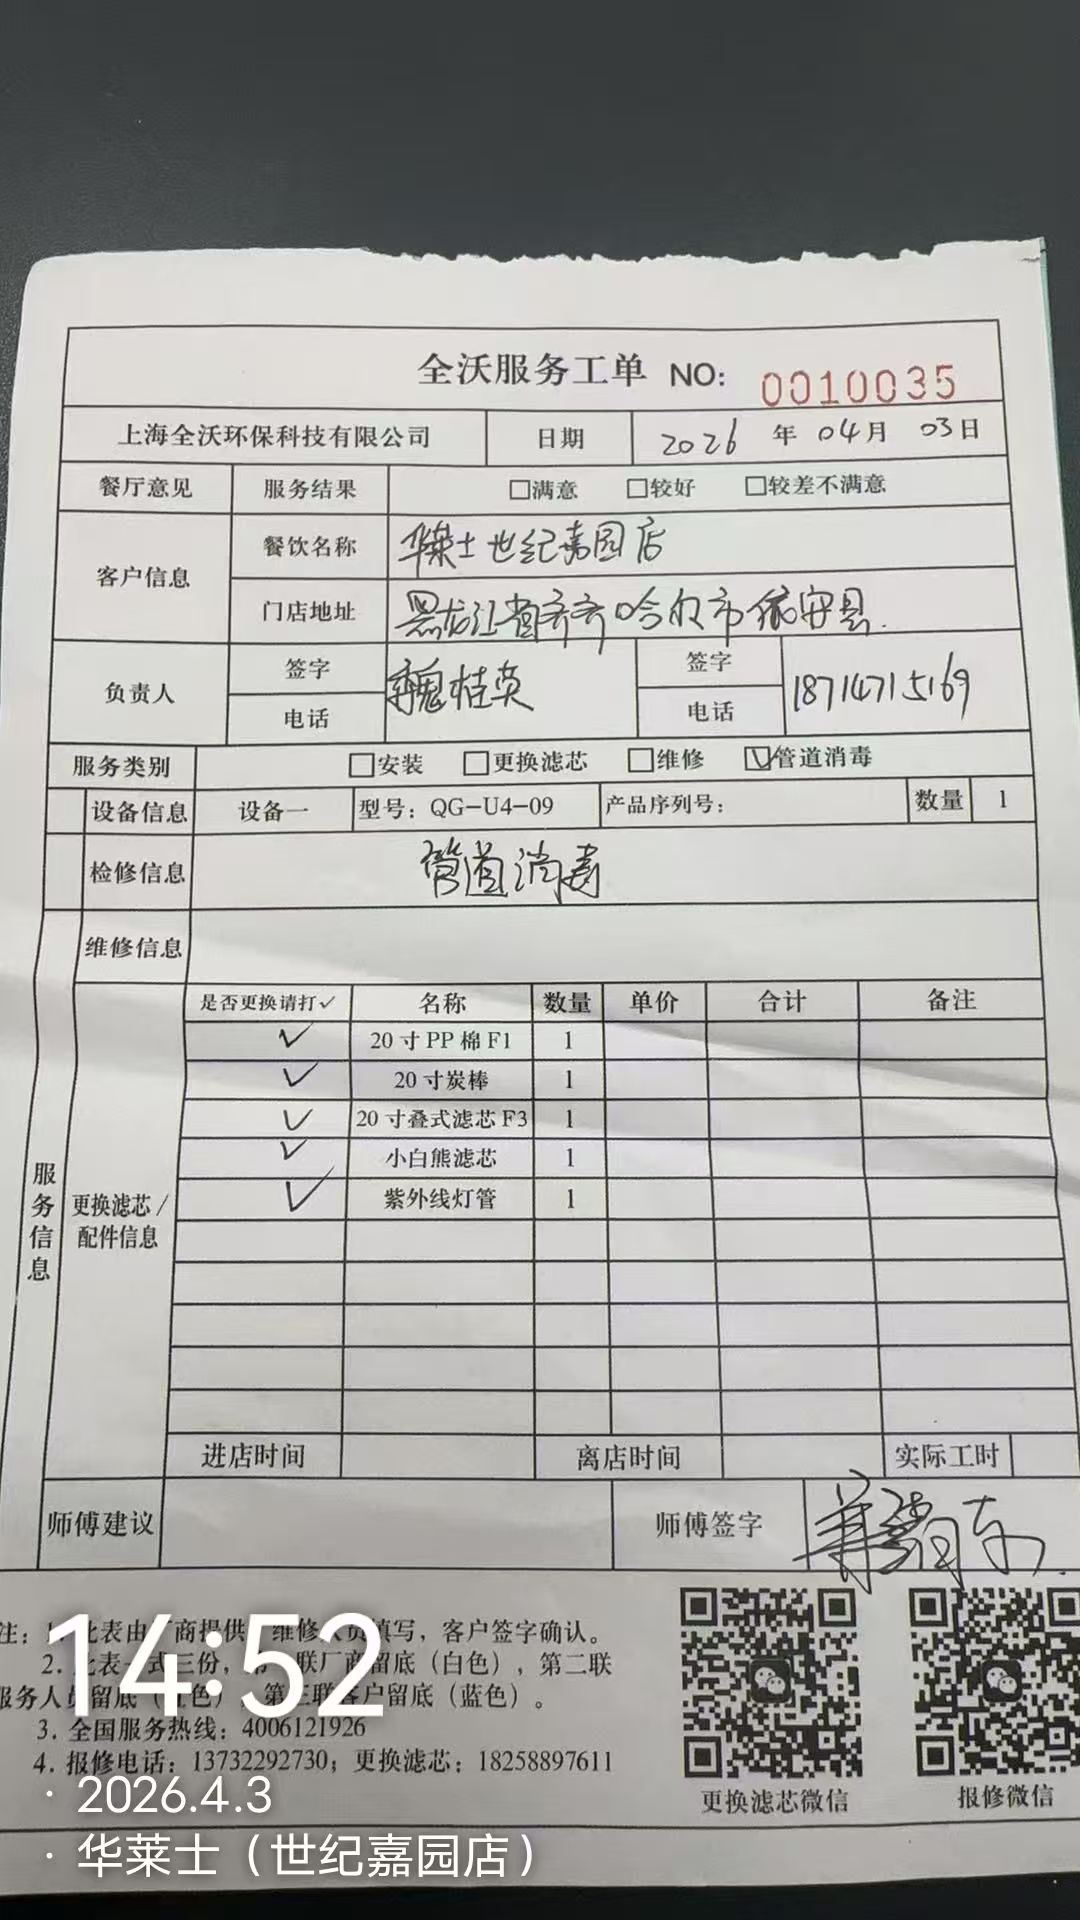 全沃服务工单 NO: 0010035
上海全沃环保科技有限公司 日期 2026 年 04 月 03 日
餐厅意见 服务结果 □满意 □较好 □较差不满意
客户信息 餐饮名称 华莱士世纪嘉园店
门店地址 黑龙江省齐齐哈尔市依安县.
负责人 签字 魏桂英 签字 18714715169
电话 电话
服务类别 □安装 □更换滤芯 □维修 ☑管道消毒
设备信息 设备一 型号：QG-U4-09 产品序列号： 数量 1
检修信息 管道消毒
维修信息
服务信息
更换滤芯/
配件信息
是否更换请打✓ 名称 数量 单价 合计 备注
✓ 20寸PP棉F1 1
✓ 20寸炭棒 1
✓ 20寸叠式滤芯F3 1
✓ 小白熊滤芯 1
✓ 紫外线灯管 1
进店时间 离店时间 实际工时
师傅建议 师傅签字
注：1. 此表由厂商提供，维修人员填写，客户签字确认。
2. 此表一式三份，第一联厂商留底（白色），第二联
服务人员留底（红色），第三联客户留底（蓝色）。
3. 全国服务热线：4006121926
4. 报修电话：13732292730；更换滤芯：18258897611
更换滤芯微信 报修微信
14:52
· 2026.4.3
· 华莱士（世纪嘉园店）